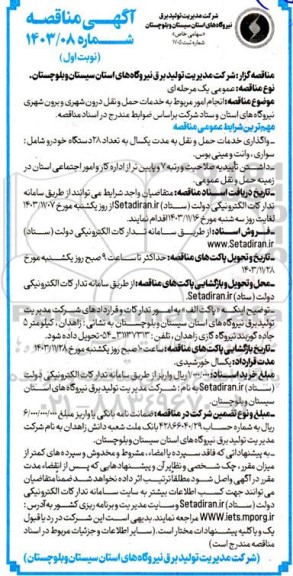 شرکت مدیریت تولید برق
نیروگاه‌های استان سیستان و بلوچستان
(سهامی خاص)
شماره ثبت ۱۷۰۵
آگهی مناقصه
شماره ۱۴۰۳/۰۸
(نوبت اول)
مناقصه گزار: شرکت مدیریت تولید برق نیروگاه‌های استان سیستان و بلوچستان.
نوع مناقصه: عمومی یک مرحله ای
موضوع مناقصه: انجام امور مربوط به خدمات حمل و نقل درون شهری و برون شهری
نیروگاه های استان و ستاد شرکت براساس ضوابط مندرج در اسناد مناقصه.
مهم‌ترین شرایط عمومی مناقصه
ـ واگذاری خدمات حمل و نقل به مدت یکسال به تعداد ۲۸ دستگاه خودرو شامل:
سواری، وانت و مینی بوس.
ـ داشتن تأییدیه صلاحیت و رتبه ۷ و پایین تر از اداره کار و امور اجتماعی استان در
زمینه حمل و نقل عمومی.
ـ تاریخ دریافت اسناد مناقصه: متقاضیان واجد شرایط می توانند از طریق سامانه
تدارکات الکترونیکی دولت (ستاد) Setadiran.ir از روز یکشنبه مورخ ۱۴۰۳/۱۱/۰۷
لغایت روز سه شنبه مورخ ۱۴۰۳/۱۱/۱۶ اقدام نمایند.
ـ فروش اسناد: از طریق سامانه تدارکات الکترونیکی دولت (ستاد)
www.Setadiran.ir
ـ تاریخ و تحویل پاکت‌های مناقصه: حداکثر تا ساعت ۹ صبح روز یکشنبه مورخ
۱۴۰۳/۱۱/۲۸
ـ محل و تحویل و بازگشایی پاکت های مناقصه: از طریق سامانه تدارکات الکترونیکی
دولت (ستاد) Setadiran.ir.
توضیح اینکه: «پاکت الف» به امور تدارکات و قراردادهای شرکت مدیریت
تولید برق نیروگاه های استان سیستان و بلوچستان به نشانی: زاهدان، کیلومتر ۵
جاده گوربند نیروگاه گازی زاهدان، تلفن: ۳۱۱۳۷۳۱۳-۰۵۴ تحویل داده شود.
ـ تاریخ بازگشایی پاکت های مناقصه: ساعت ۱۰ صبح روز یکشنبه مورخ ۱۴۰۳/۱۱/۲۸
مدت قرارداد: یکسال خورشیدی.
ریال واریز از طریق سامانه تدارکات الکترونیکی دولت
(ستاد) Setadiran.ir به نام: شرکت مدیریت تولید برق نیروگاه های استان
سیستان و بلوچستان.
ـ مبلغ و نوع تضمین شرکت در مناقصه: ضمانت نامه بانکی یا واریز مبلغ ۶/۰۰۰/۰۰۰/۰۰۰
ریال به شماره حساب ۴۲۸۶۶۰۴۰۲۹ بانک ملت شعبه دانش زاهدان به نام شرکت
مدیریت تولید برق نیروگاه های استان سیستان و بلوچستان.
ـ به پیشنهاداتی که فاقد سپرده یا امضاء، مشروط و مخدوش و سپرده های کمتر از
میزان مقرر، چک شخصی و نظایر آن و پیشنهادهایی که پس از انقضاء مدت
مقرر در آگهی واصل شود مطلقا ترتیب اثر داده نخواهد شد ضمناً متقاضیان
می توانند جهت کسب اطلاعات بیشتر به سایت سامانه تدارکات الکترونیکی
دولت (ستاد) Setadiran.ir و سایت مدیریت و برنامه ریزی کشور به آدرس:
www.iets.mporg.ir مراجعه نمایند. بدیهی است این شرکت در رد یا قبول
یک و یا کلیه پیشنهادات مختار است. (سایر اطلاعات و جزئیات مربوط در اسناد
مناقصه مندرج است)
(شرکت مدیریت تولید برق نیروگاه‌های استان سیستان و بلوچستان)